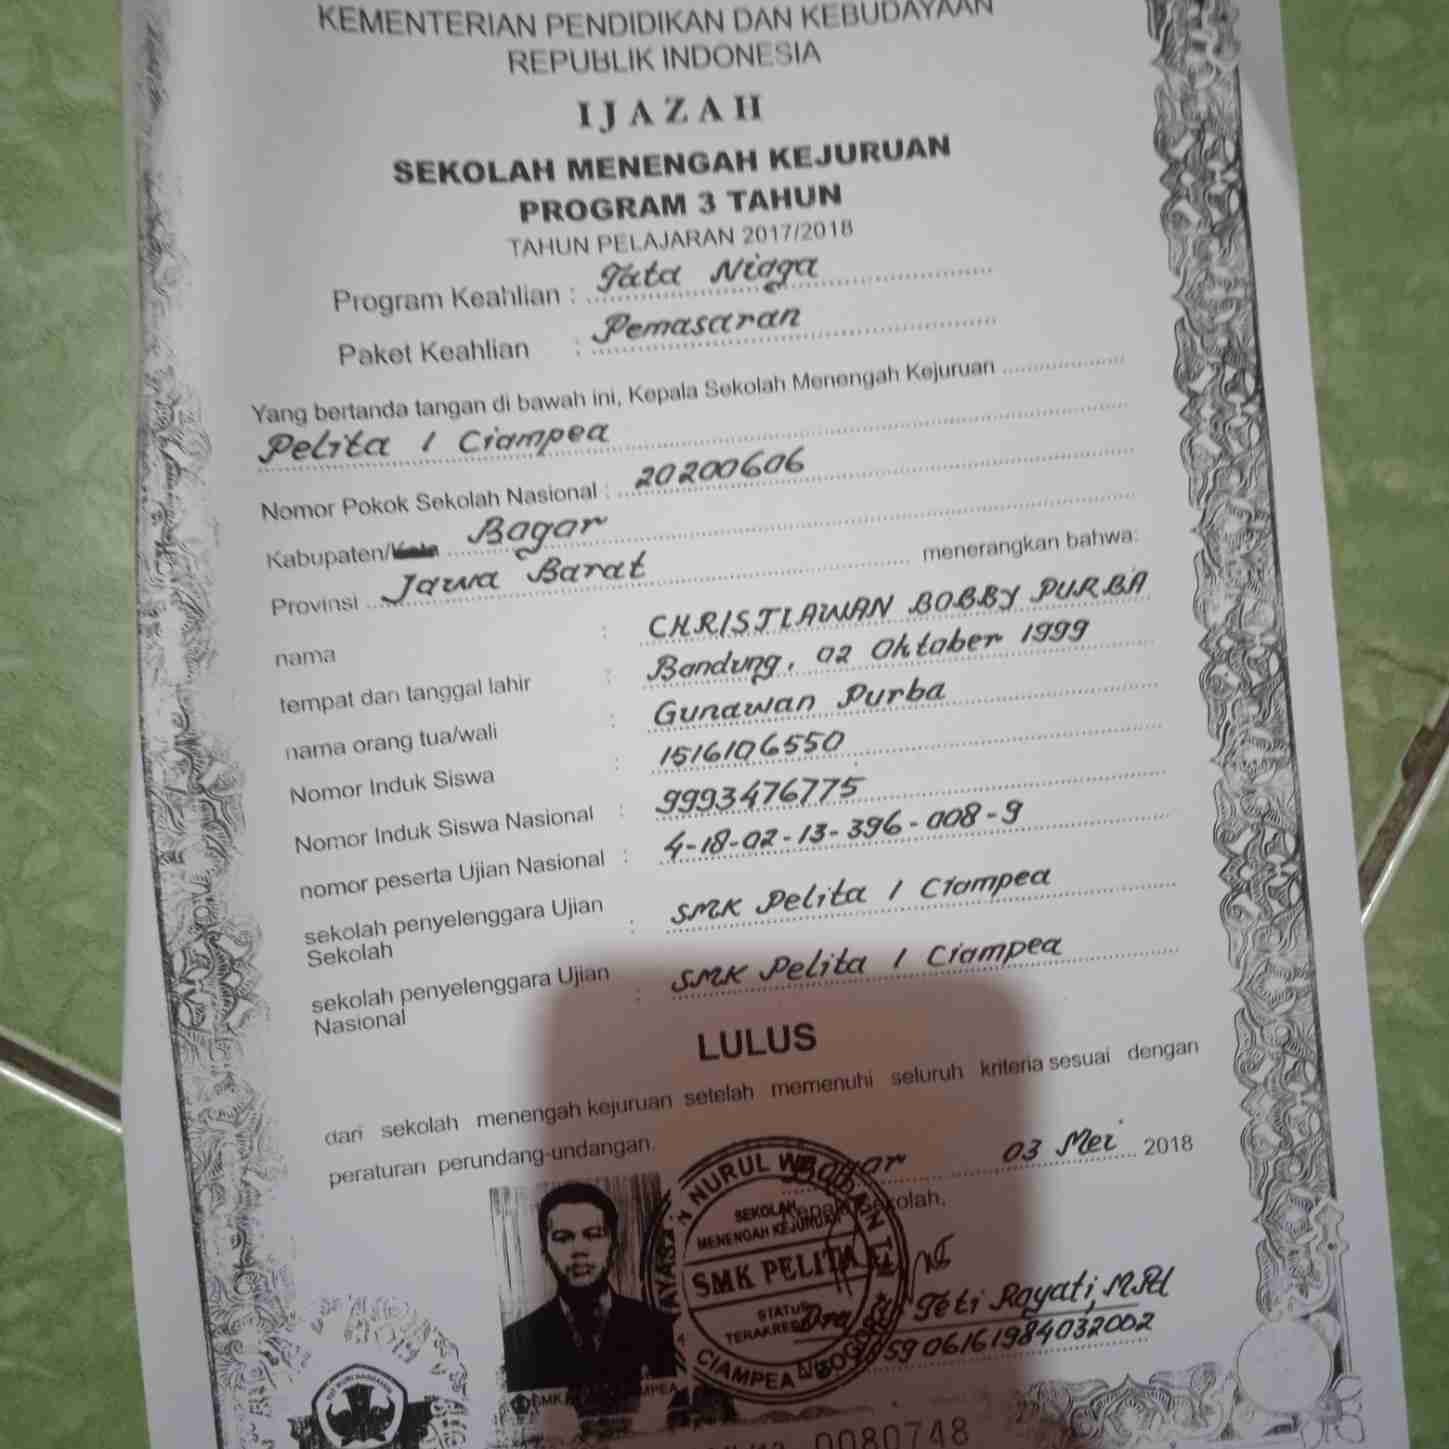 KEMENTERIAN PENDIDIKAN DAN KEBUDAYAAN
REPUBLIK INDONESIA
IJAZAH
SEKOLAH MENENGAH KEJURUAN
PROGRAM 3 TAHUN
TAHUN PELAJARAN 2017/2018
Program Keahlian : Tata Niaga
Paket Keahlian : Pemasaran
Yang bertanda tangan di bawah ini, Kepala Sekolah Menengah Kejuruan
Pelita 1 Ciampea
Nomor Pokok Sekolah Nasional : 20200606
Kabupaten/Kota Bogor
Provinsi Jawa Barat menerangkan bahwa:
nama : CHRISTIAWAN BOBBY PURBA
tempat dan tanggal lahir : Bandung, 02 Oktober 1999
nama orang tua/wali : Gunawan Purba
Nomor Induk Siswa : 1516106550
Nomor Induk Siswa Nasional : 9993476775
nomor peserta Ujian Nasional : 4-18-02-13-396-008-9
sekolah penyelenggara Ujian
Sekolah : SMK Pelita 1 Ciampea
sekolah penyelenggara Ujian
Nasional : SMK Pelita 1 Ciampea
LULUS
dari sekolah menengah kejuruan setelah memenuhi seluruh kriteria sesuai dengan
peraturan perundang-undangan.
Bogor 03 Mei 2018
Kepala Sekolah,
NURUL
SEKOLAH
MENENGAH KEJURUAN
SMK PELITA
STATUS
CIAMPEA
Teti Rayati, M.Pd
195906161984032002
0080748